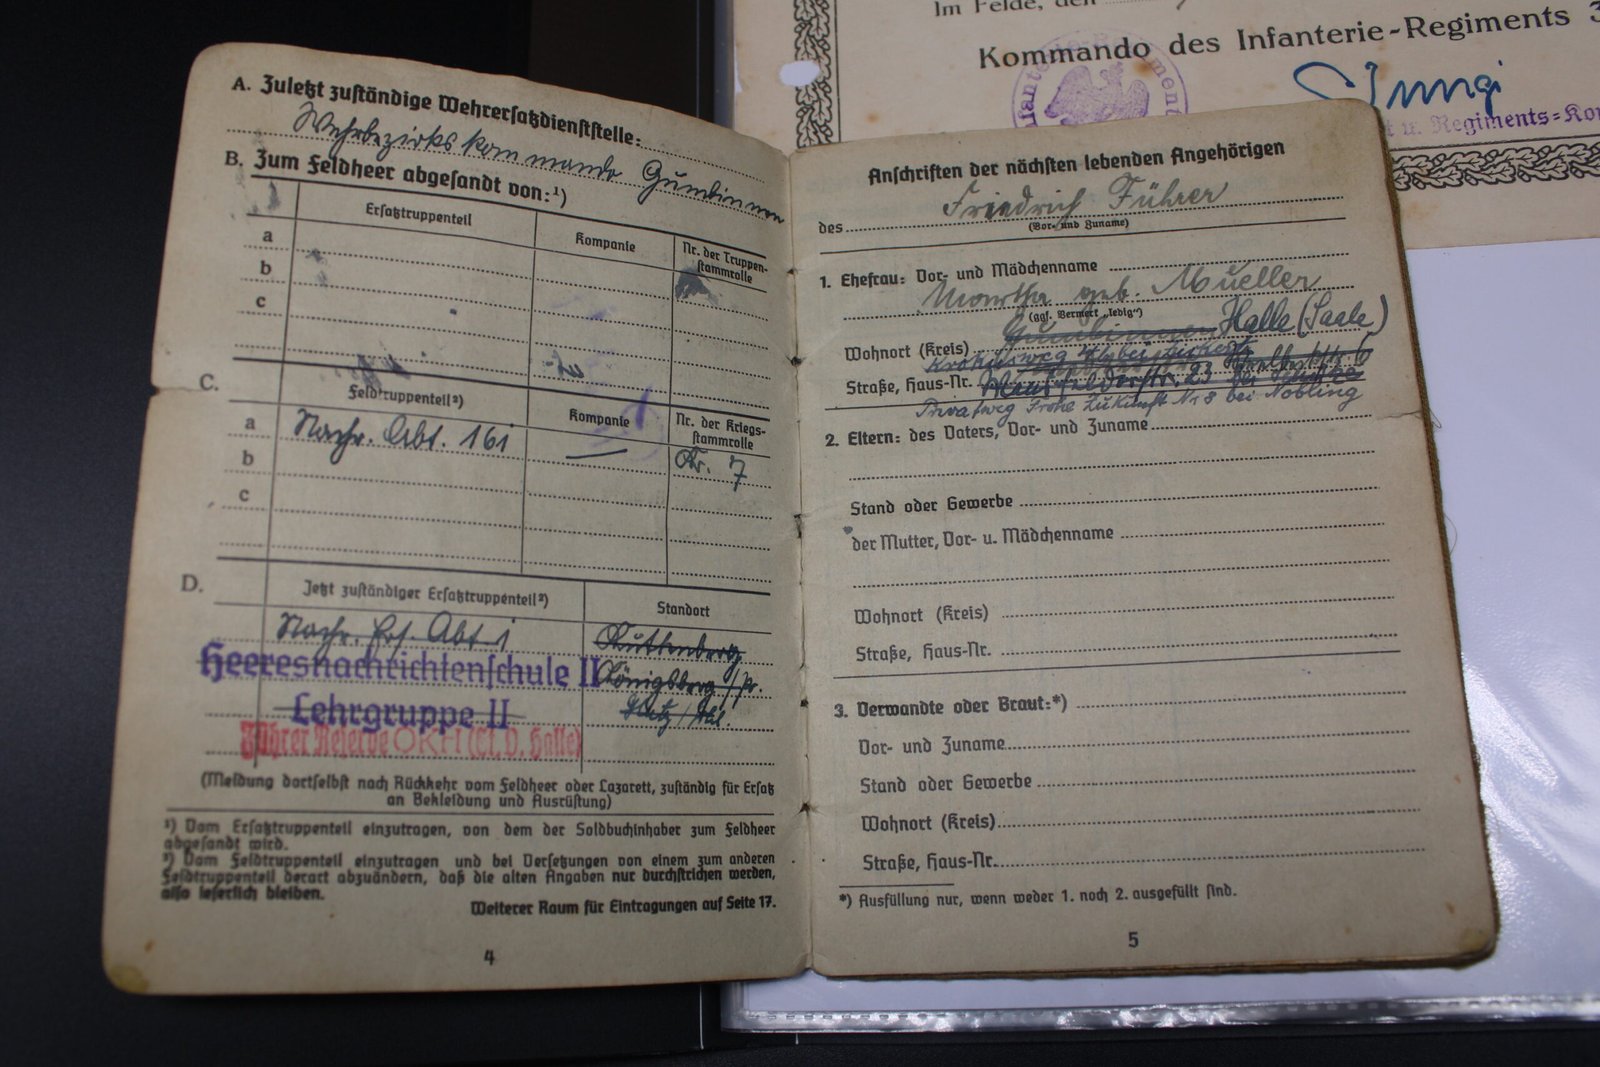 Im Felde, den
Kommando des Infanterie-Regiments 3
u. Regiments-Ko
A. Zuletzt zuständige Wehrersatzdienststelle:
Wehrbezirkskommando Gumbinnen
B. Zum Feldheer abgesandt von:¹)
Ersatztruppenteil Kompanie Nr. der Truppen-
stammrolle
a
b
c
C.
Feldtruppenteil²) Kompanie Nr. der Kriegs-
stammrolle
a Nachr. Abt. 161 — Kr. 7
b
c
D.
Jetzt zuständiger Ersatztruppenteil²) Standort
Nachr. Ers. Abt 1 Kuttenberg
Heeresnachrichtenschule II Königsberg/Pr.
Lehrgruppe II
Führer Reserve OKH (Halle)
(Meldung dortselbst nach Rückkehr vom Feldheer oder Lazarett, zuständig für Ersatz
an Bekleidung und Ausrüstung)
¹) Vom Ersatztruppenteil einzutragen, von dem der Soldbuchinhaber zum Feldheer
abgesandt wird.
²) Vom Feldtruppenteil einzutragen und bei Versetzungen von einem zum anderen
Feldtruppenteil derart abzuändern, daß die alten Angaben nur durchstrichen werden,
also leserlich bleiben.
Weiterer Raum für Eintragungen auf Seite 17.
4
Anschriften der nächsten lebenden Angehörigen
des Friedrich Führer
(Vor- und Zuname)
1. Ehefrau: Vor- und Mädchenname
geb. Mueller
(ggf. Vermerk „ledig“)
Wohnort (Kreis) Gumbinnen Halle (Saale)
Straße, Haus-Nr. 23
Privatweg Frohe Zukunft Nr 8 bei Nobling
2. Eltern: des Vaters, Vor- und Zuname
Stand oder Gewerbe
der Mutter, Vor- u. Mädchenname
Wohnort (Kreis)
Straße, Haus-Nr.
3. Verwandte oder Braut:*)
Vor- und Zuname
Stand oder Gewerbe
Wohnort (Kreis)
Straße, Haus-Nr.
*) Ausfüllung nur, wenn weder 1. noch 2. ausgefüllt sind.
5